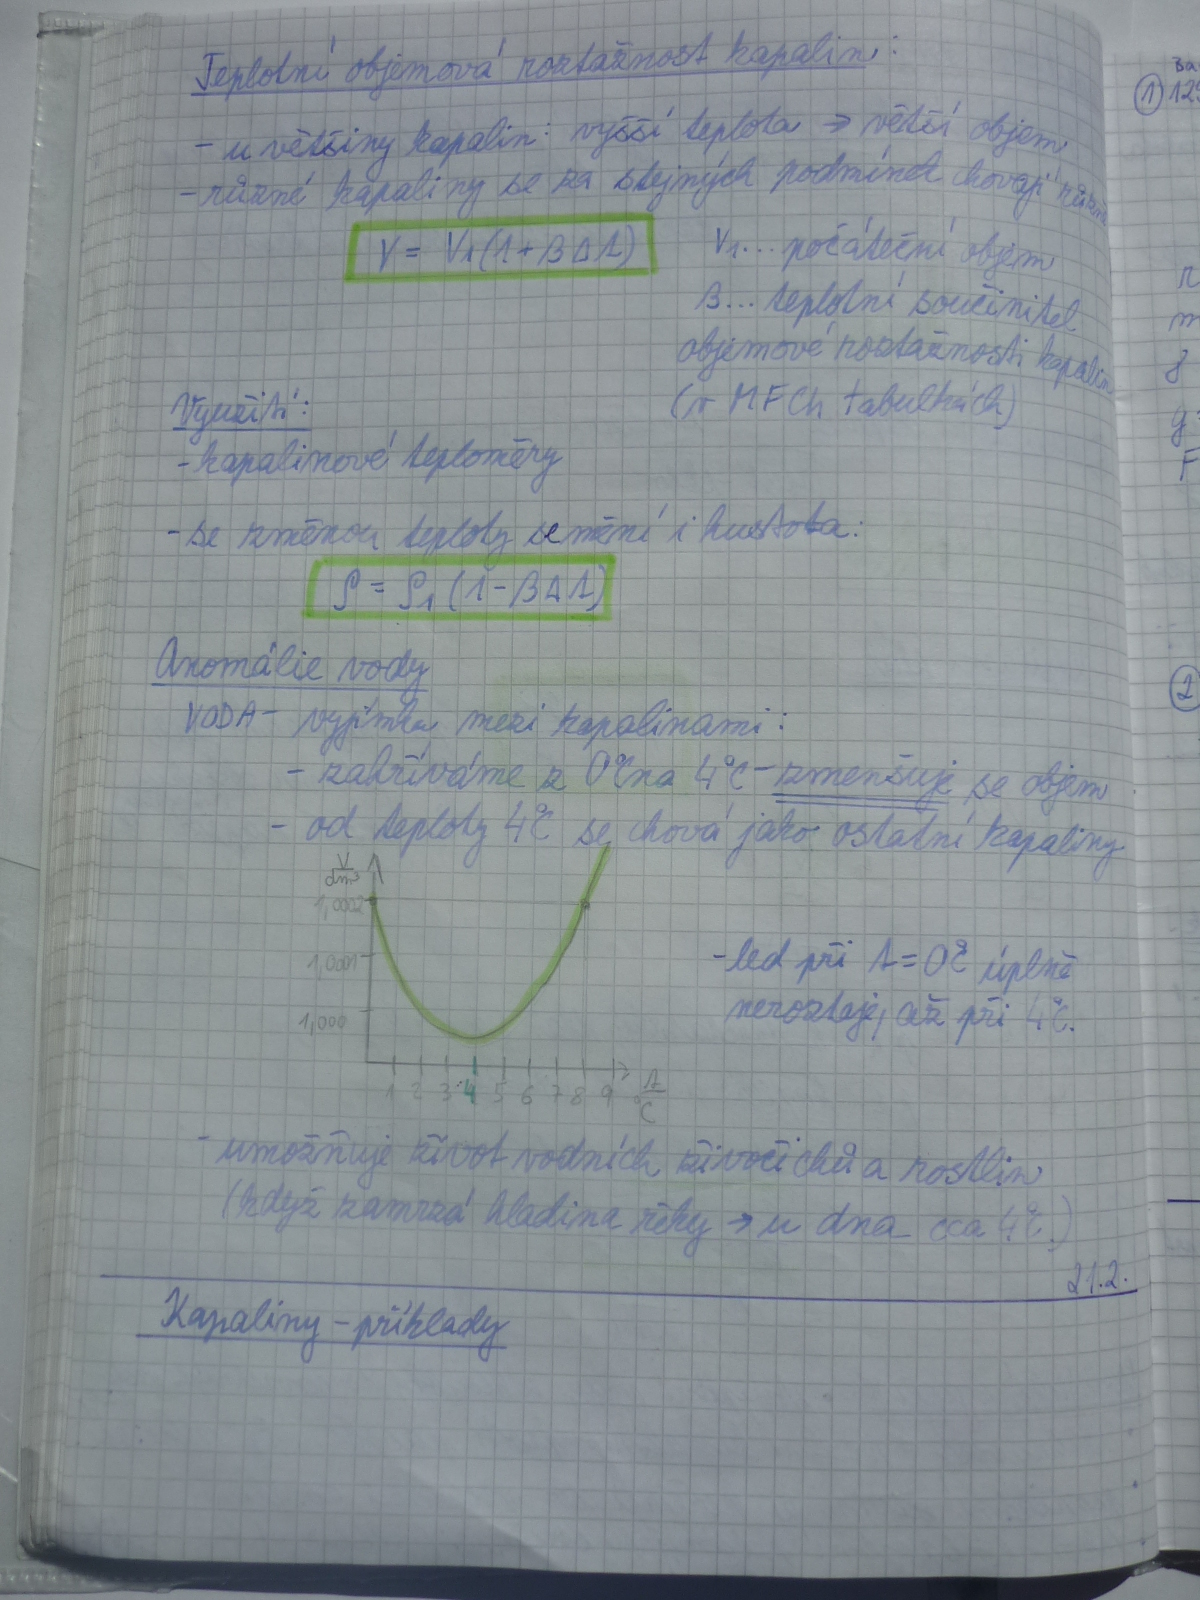 Teplotní objemová roztažnost kapalin:
- u většiny kapalin: vyšší teplota → větší objem
- různé kapaliny se za stejných podmínek chovají různě
V = V₁(1+βΔt)
V₁... počáteční objem
β... teplotní součinitel
objemové roztažnosti kapalin
(v MFCh tabulkách)
Využití:
- kapalinové teploměry
- se změnou teploty se mění i hustota:
ρ = ρ₁(1-βΔt)
Anomálie vody
VODA - vyjímka mezi kapalinami:
- zahříváme z 0°C na 4°C - zmenšuje se objem
- od teploty 4°C se chová jako ostatní kapaliny
V/dm³
1,0002
1,0001
1,000
1 2 3 4 5 6 7 8 9 t/°C
- led při t=0°C úplně
neroztaje, až při 4°C.
- umožňuje život vodních živočichů a rostlin
(když zamrzá hladina řeky → u dna cca 4°C)
21.2.
Kapaliny - příklady
①
②
r
m
g
F